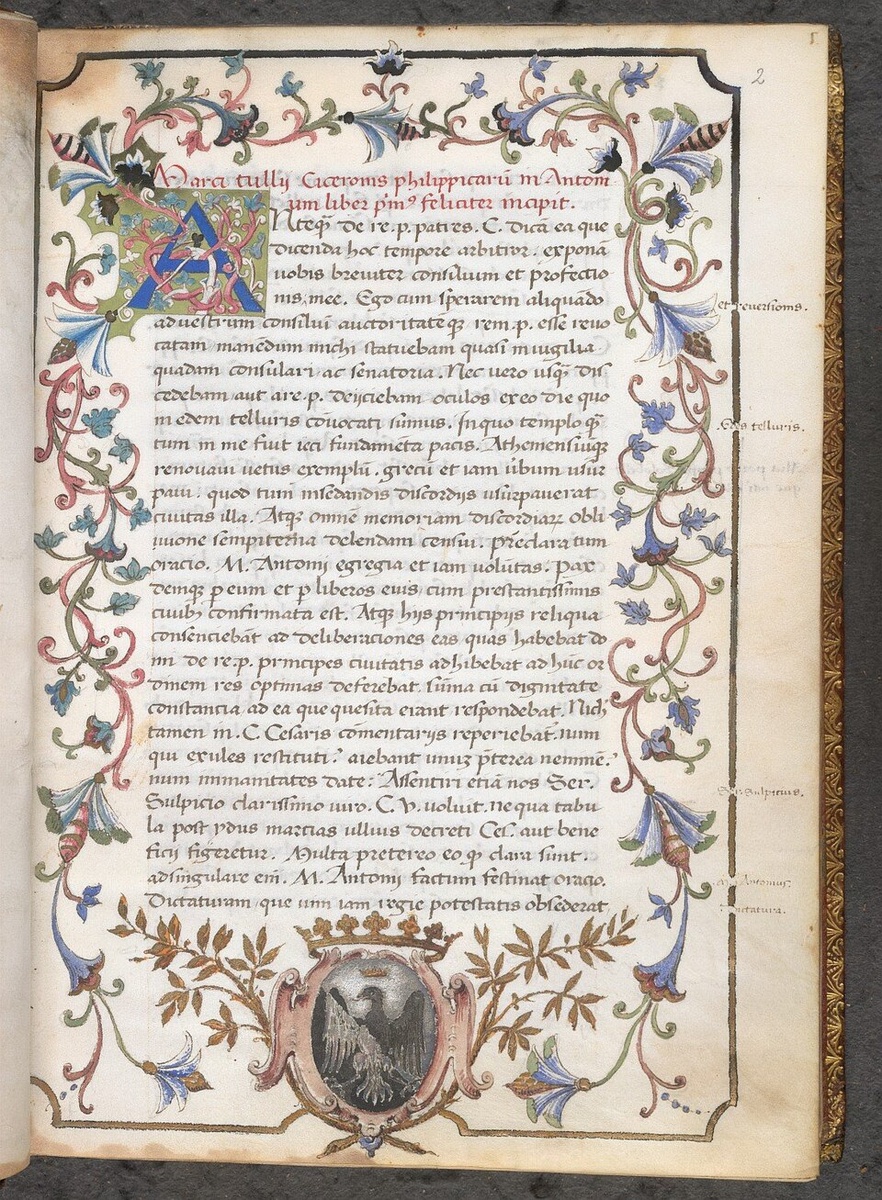 2
Marci tullij Ciceronis philippicarū in Antoni
um liber pͥmꝰ feliciter incipit.
ANteqꝫ de re. p. patres. C. dicā ea que
dicenda hoc tempore arbitror. exponā
uobis breuiter consilium et profectio
nis mee. Ego cum sperarem aliquādo
ad uestrum consiluī auctoritateqꝫ rem. p. esse reuo
catam manēdum michi statuebam quasi in uigilia
quadam consulari ac senatoria. Nec uero usqꝫ dis
cedebam aut a re. p. deijciebam oculos ex eo die quo
in edem telluris cōuocati sumus. In quo templo qꝫ
tum in me fuit ieci fundamēta pacis. Atheniensiūqꝫ
renouaui uetus exemplū. grecū et iam ūbum usur
paui: quod tum in sedandis discordijs usurpauerat
ciuitas illa. Atqꝫ omnē memoriam discordiarꝝ obli
uione sempiterna delendam censui. preclara tum
oracio. M. Antonij egregia et iam uolūtas. pax
deniqꝫ p eum et p liberos euis, cum prestantissimis
ciuibꝫ confirmata est. Atqꝫ hijs principijs reliqua
consenciebāt ad deliberaciones eas quas habebat do
mi de re. p. principes ciuitatis adhibebat ad hūc or
dinem res optimas deferebat. sūma cū dignitate
constancia ad ea que quesita erant respondebat. Nich
tamen in. C. Cesaris comentarijs reperiebat. num
qui exules restituti? aiebant unūz pͣterea neminē.
num inmanitates date: Assentiri etiā nos Ser.
Sulpicio clarissimo uiro. C. V. uoluit. ne qua tabu
la post ydus marcias ullius decreti Ces. aut bene
ficij figeretur. Multa pretereo eo qꝫ clara sunt.
ad singulare eni. M. Antonij factum festinat oracio.
Dictaturam, que uim iam regie potestatis obsederat
et reuersionis.
Edes telluris.
Ser. Sulpicius.
M. Antonius.
Dictatura.